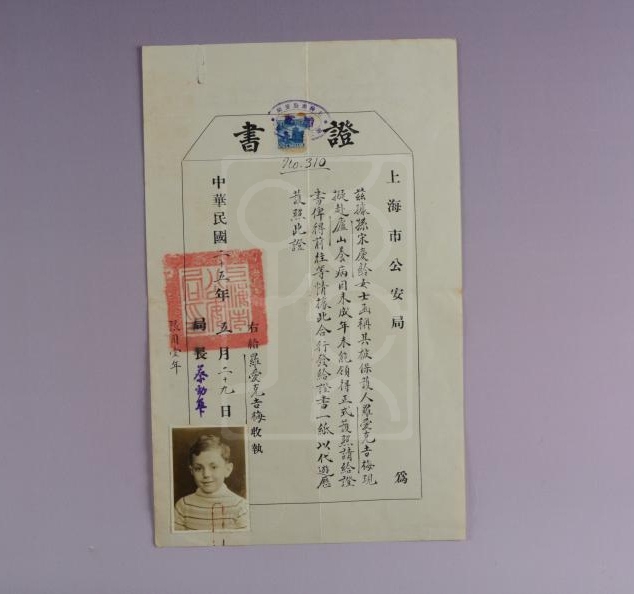 證書
No. 310
上海市公安局 為
茲據孫宋慶齡女士函稱其被保護人羅愛克吉梅現
擬赴廬山養病因未成年未能領得正式護照請給證
書俾得前往等情據此合行發給證書一紙以代遊歷
護照此證
右給羅愛克吉梅收執
中華民國二十五年五月二十九日
局長蔡勁軍